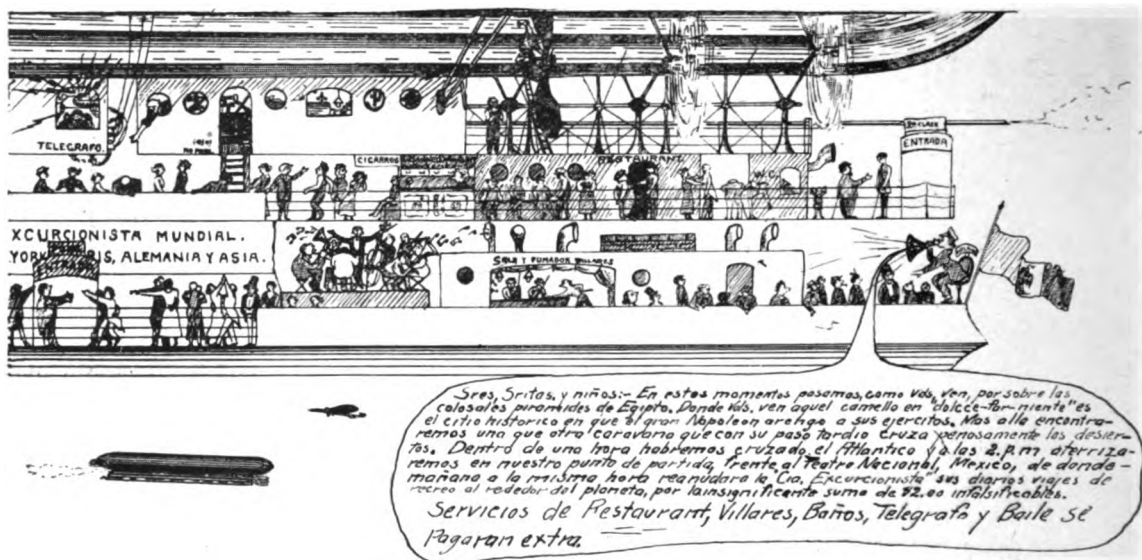 TELEGRAFO.
CIGARROS
RESTAURANT
W.C.
CLASE
ENTRADA
XCURCIONISTA MUNDIAL.
YORK
IS, ALEMANIA Y ASIA.
ENTRADA
SALA Y FUMADOR VILLARES
Sres, Sritas, y niños:- En estos momentos pasamos, como Vds, ven, por sobre las
colosales piramides de Egipto. Donde Vds. ven aquel camello en "dolcce-far-niente" es
el citio historico en que el gran Napoleon arengo a sus ejercitos. Mas alla encontra-
remos una que otra caravana que con su paso tardio cruza penosamente los desier-
tos. Dentro de una hora habremos cruzado el Atlantico y a las 2. p.m aterriza-
remos en nuestro punto de partida, frente al Teatro Nacional, Mexico, de donde-
mañana a la misma hora reanudara la Cia, Excurcionista sus diarios viajes de
recreo al rededor del planeta, por la insignificente suma de $2.00 infalsificables.
Servicios de Restaurant, Villares, Baños, Telegrafo y Baile se
Pagaran extra.